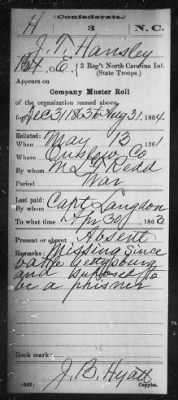 (Confederate.)
H 3 N.C.
J. T. Hansley
Pvt, Co. E, 3 Reg't North Carolina Inf.
(State Troops.)
Appears on
Company Muster Roll
of the organization named above,
for Dec 31 1863 to Aug 31, 1864.
Enlisted:
When May 13 1861
Where Onslow Co
By whom M. L. F. Redd
Period War
Last paid:
By whom Capt Langdon
To what time Apr 30, 1863
Present or absent Absent
Remarks: Missing since
battle Gettysburg
and supposed to
be a prisner
Book mark:
J. B. Hyatt
(642) Copyist.